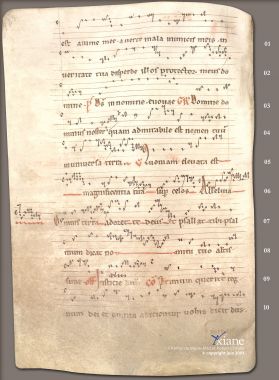 est anime mee averte mala inimicis meis in
veritate tua disperde illos protector meus do
mine Ps Ds in nomine tuo evovae GR Domine do
minus noster quam admirabile est nomen tuum
in universa terra V Quoniam elevata est
magnificentia tua super celos Alleluia
Omnis terra adoret te deus et psallat tibi psal
mum dicat no mini tuo altis
sime OF Iusticie dni CO Primum querite reg
num dei et omnia adicientur vobis dicit dns
01
02
03
04
05
06
07
08
09
10
xiane
© copyright juin 2003